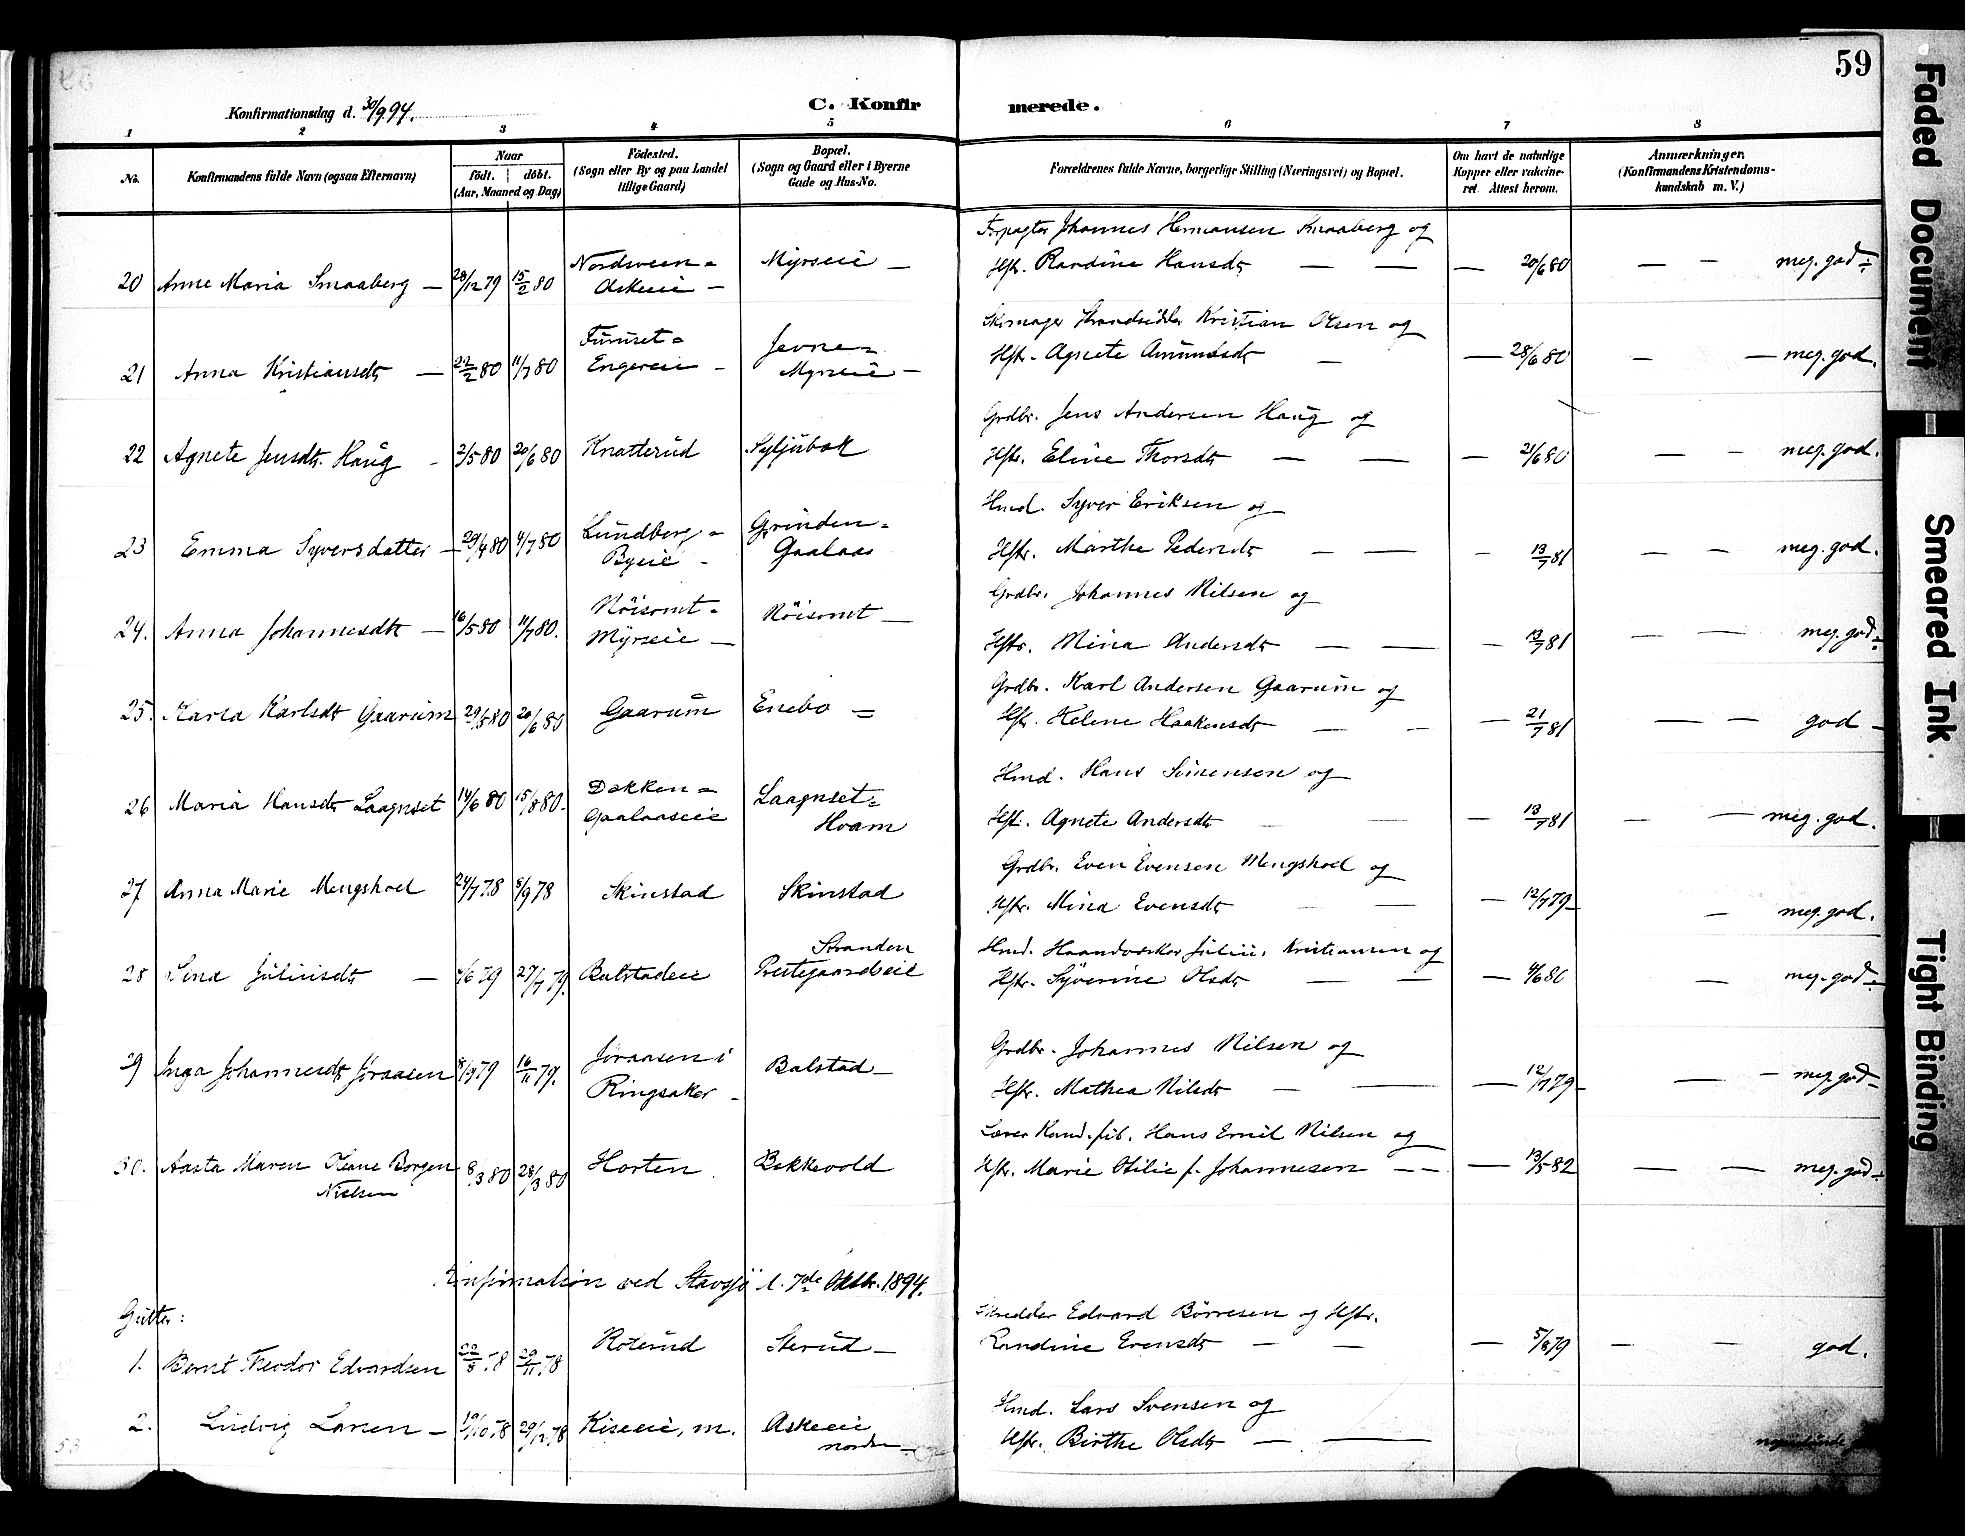 59
Konfirmationsdag d. 30/9 94.
C. Konfirmerede.
1 2 3 4 5 6 7 8
No.
Konfirmandens fulde Navn (ogsaa Efternavn)
Naar
født. døbt.
(Aar, Maaned og Dag)
Fødested.
(Sogn eller By og paa Landet
tillige Gaard)
Bopæl.
(Sogn og Gaard eller i Byerne
Gade og Hus-No.
Forældrenes fulde Navne, borgerlige Stilling (Næringsvei) og Bopæl.
Om havt de naturlige
Kopper eller vakcine-
ret. Attest herom.
Anmærkninger.
(Konfirmandens Kristendoms-
kundskab m. V.)
Forpagter Johannes Hermansen Smaaberg og
20 Anne Maria Smaaberg — 28/12 79 15/2 80 Nordsveen = Askeeie — Myrseie — Hstr. Randine Hansdtr — — — 20/6 80 — — meg. god ÷
Skomager Strandsidder Kristian Olsen og
21 Anna Kristiansdtr — 22/2 80 11/7 80 Furuset = Engereie — Jevne = Myrseie — Hstr. Agnete Amundsdtr — — 28/6 80 — — meg. god.
Grdbr. Jens Andersen Haug og
22 Agnete Jensdtr. Haug - 2/5 80 20/6 80 Knatterud Syljubak Hstr. Eline Thorsdtr — — — 21/6 80 — — meg. god.
Hmd. Syver Eriksen og
23 Emma Syversdatter — 29/4 80 4/7 80 Lundberg = Byeie - Grinden = Gaalaas Hstr. Marthe Pedersdtr — — - 13/7 81 — — meg. god.
Grdbr. Johannes Nilsen og
24. Anna Johannesdtr — 16/5 80 11/7 80. Nöisomt = Myrseie — Nöisomt — Hstr. Mina Andersdtr — — — 13/7 81 — — meg. god ÷
Grdbr. Karl Andersen Gaarum og
25. Karla Karlsdtr Gaarum 29/5 80 20/6 80 Gaarum Enebo = Hstr. Helene Haakensdtr — - — 21/7 81 — — god -
Hmd. Hans Simensen og
26 Maria Hansdtr Laagnset 14/6 80 15/8 80. Dekken = Gaalaaseie Laagnset = Hvam Hstr. Agnete Andersdtr — — — 13/7 81 — — meg. god.
Grdbr. Even Evensen Mengshoel og
27 Anna Marie Mengshoel 24/7 78 8/9 78 Skinstad Skinstad Hstr. Mina Evensdtr — — — 12/7 79 — — meg. god.
Hmd. Haandværker Julius Kristiansen og
28 Sina Juliusdtr — /6 79 27/7 79. Balstadeie Stranden Prestegaardseie Hstr. Syverine Olsdtr — — — 4/6 80 — meg. god ÷
Grdbr. Johannes Nilsen og
29 Inga Johannesdtr Jøraasen 8/9 79 16/11 79. Jøraasen i Ringsaker - Balstad — Hstr. Mathea Nilsdtr — — — 12/7 79 - — — meg. god -
Lærer Kand. fil. Hans Emil Nilsen og
30. Aasta Maren Oleane Borgen Nielsen 8/3 80 28/3 80 Horten Bekkevold Hstr. Marie Otilie f. Johannesen — — — 13/5 82 — — meg. god ÷
Konfirmation ved Stavsjö d. 7de Oktbr. 1894.
Gutter:
Skredder Edvard Børresen og Hstr.
1. Bernt Theodor Edvardsen 22/8 78 29/11 78 Roterud Sterud — Randine Evensdtr — — — 5/8 79 — — god.
Hmd. Lars Svensen og
2. Ludvig Larsen — 19/10 78 29/12 78 Kiseeie, m. Askeeie nordre — Hstr. Birthe Olsdtr — —
53
Faded Document
Smeared Ink.
Tight Binding